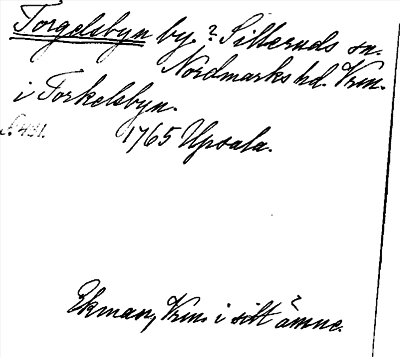 Torgelsbyn by. ? Silleruds sn.
Nordmarks hd. Vrm.
i Torkelsbyn.
S. 421. 1765 Upsala.
Ekman, Vrm. i sitt ämne.